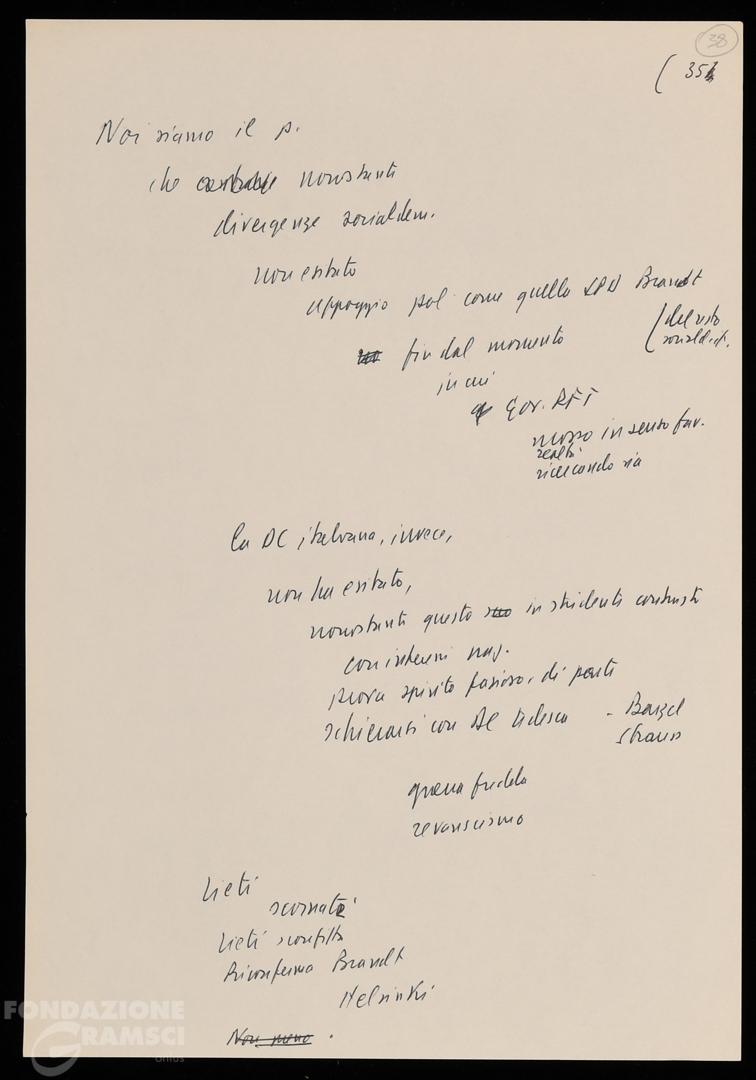 38
( 351
Noi siamo il p.
che nonostante
divergenze socialdem.
non esitato
appoggio pol come quella SPD Brandt
(del resto
socialdem.
fin dal momento
in cui
gov. RFT
mosso in senso fav.
realtà
ricercando via
la DC italiana, invece,
non ha esitato,
nonostante questo in stridente contrasto
con interessi naz.
prova spirito fazioso, di parte
schierarsi con DC tedesca - Barzel
Strauss
guerra fredda
revanscismo
Lieti
scornati
Lieti sconfitta
Riconferma Brandt
Helsinki
Non meno .
FONDAZIONE
GRAMSCI
onlus